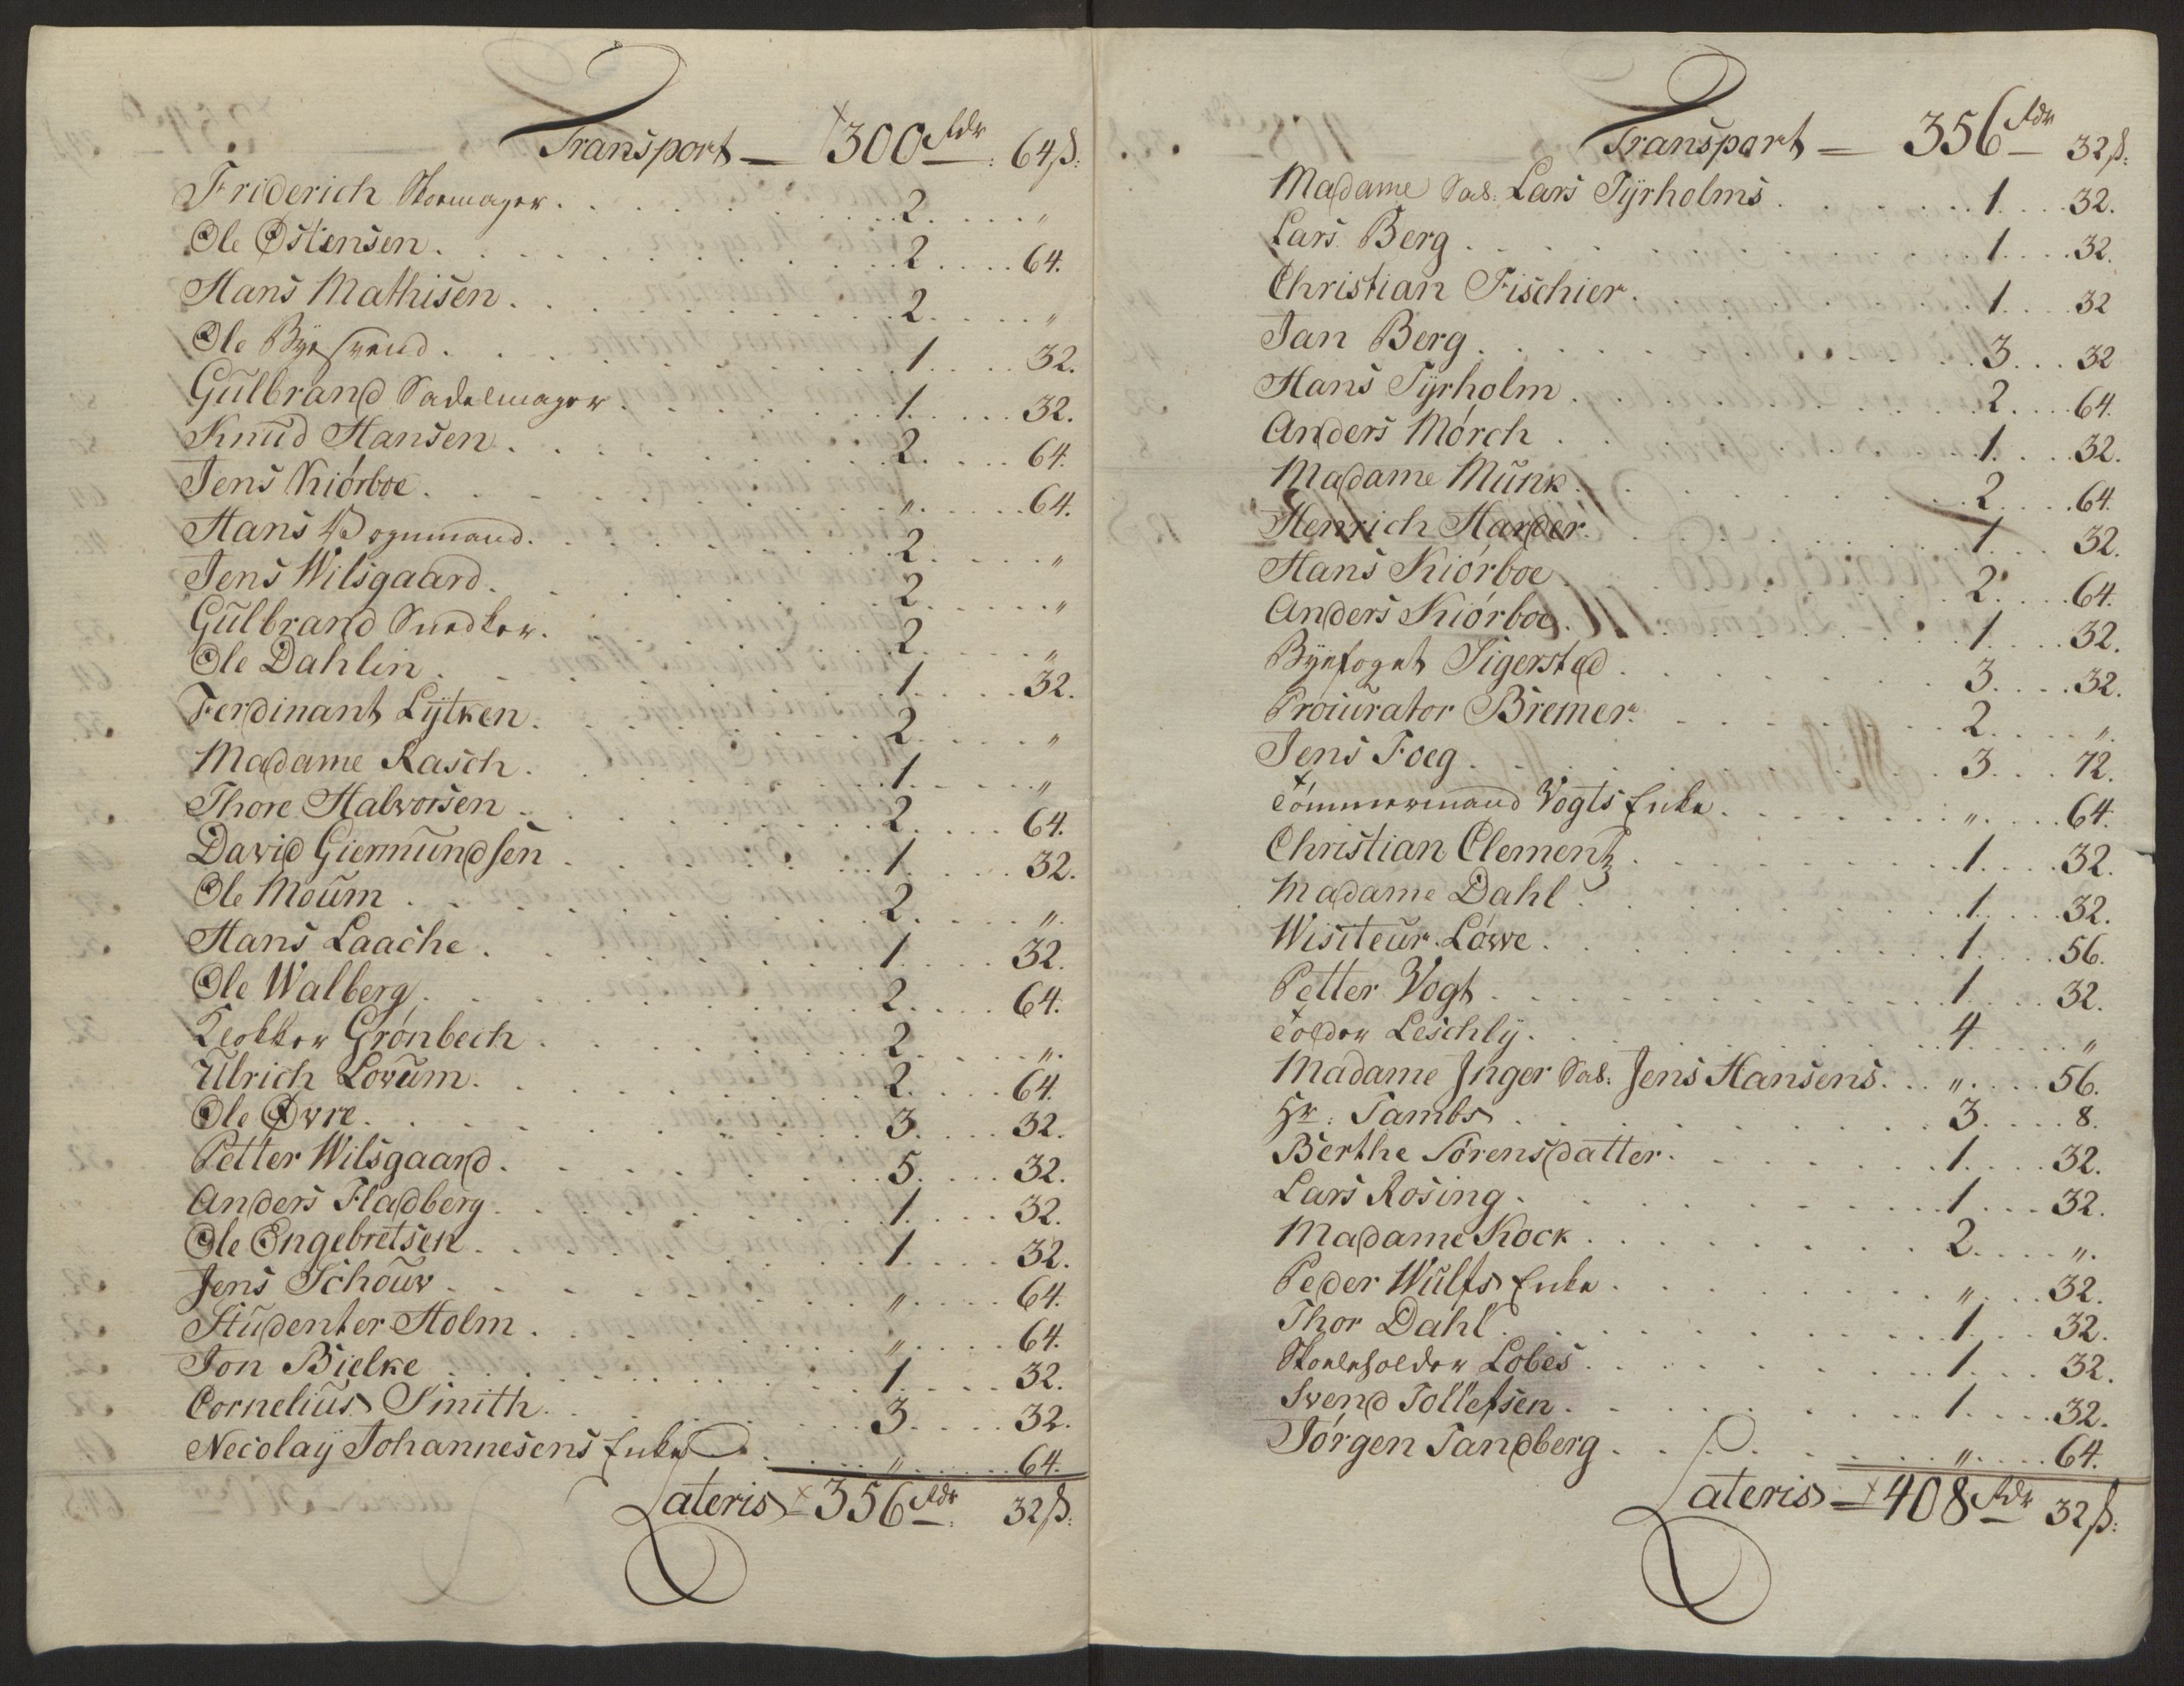 Transport — 300 Rdr: 64 ß:
Friderich Skoemager . . . 2 . . . "
Ole Østensen . . . 2 . . . 64.
Hans Mathisen . . . 2 . . . "
Ole Bye Svend . . . 1 . . . 32.
Gülbrand Sadelmager . . . 1 . . . 32.
Knüd Hansen . . . 2 . . . 64.
Jens Kiörboe . . . " . . . 64.
Hans Vognmand . . . 2 . . . "
Jens Wilsgaard . . . 2 . . . "
Gülbrand Snedker . . . 2 . . . "
Ole Dahlin . . . 1 . . . 32.
Ferdinant Lÿtken . . . 2 . . . "
Madame Rasch . . . 1 . . . "
Thore Halvorsen . . . 2 . . . 64.
David Giermündsen . . . 1 . . . 32.
Ole Moüm . . . 2 . . . "
Hans Laache . . . 1 . . . 32.
Ole Walberg . . . 2 . . . 64.
Klokker Grönbech . . . 2 . . . "
Ülrich Lovüm . . . 2 . . . 64.
Ole Øvre . . . 3 . . . 32.
Petter Wilsgaard . . . 5 . . . 32.
Anders Fladberg . . . 1 . . . 32.
Ole Engebretsen . . . 1 . . . 32.
Jens Schoüw . . . " . . . 64.
Stüdenter Holm . . . " . . . 64.
Jon Bielke . . . 1 . . . 32.
Corneliüs Smith . . . 3 . . . 32.
Necolaÿ Johannesens Enke . . . " . . . 64.
Lateris 356 Rdr: 32 ß:
Transport — 356 Rdr 32 ß:
Madame Sal: Lars Tÿrholms . . . 1 . . . 32.
Lars Berg . . . 1 . . . 32.
Christian Fischier . . . 1 . . . 32
Jan Berg . . . 3 . . . 32
Hans Tÿrholm . . . 2 . . . 64.
Anders Mörch . . . 1 . . . 32.
Madame Münk . . . 2 . . . 64.
Henrich Harder . . . 1 . . . 32.
Hans Kiörboe . . . 2 . . . 64.
Anders Kiörboe . . . 1 . . . 32.
Bÿefoget Sigersted . . . 3 . . . 32.
Procurator Bremer . . . 2 . . . "
Jens Foeg . . . 3 . . . 72.
Tömmermand Vogts Enke . . . " . . . 64.
Christian Clementz . . . 1 . . . 32.
Madame Dahl . . . 1 . . . 32.
Wisiteur Löwe . . . 1 . . . 56.
Petter Vogt . . . 1 . . . 32.
Tolder Leschlÿ . . . 4 . . . "
Madame Inger Sal: Jens Hansens . . . " . . . 56.
Hr: Tambs . . . 3 . . . 8.
Berthe Sörensdatter . . . 1 . . . 32.
Lars Rosing . . . 1 . . . 32.
Madame Kock . . . 2 . . . "
Peder Wülfs Enke . . . " . . . 32.
Thor Dahl . . . 1 . . . 32.
Skoleholder Lobes . . . 1 . . . 32.
Svend Tollefsen . . . 1 . . . 32.
Jörgen Tandberg . . . " . . . 64.
Lateris — 408 Rdr 32 ß: